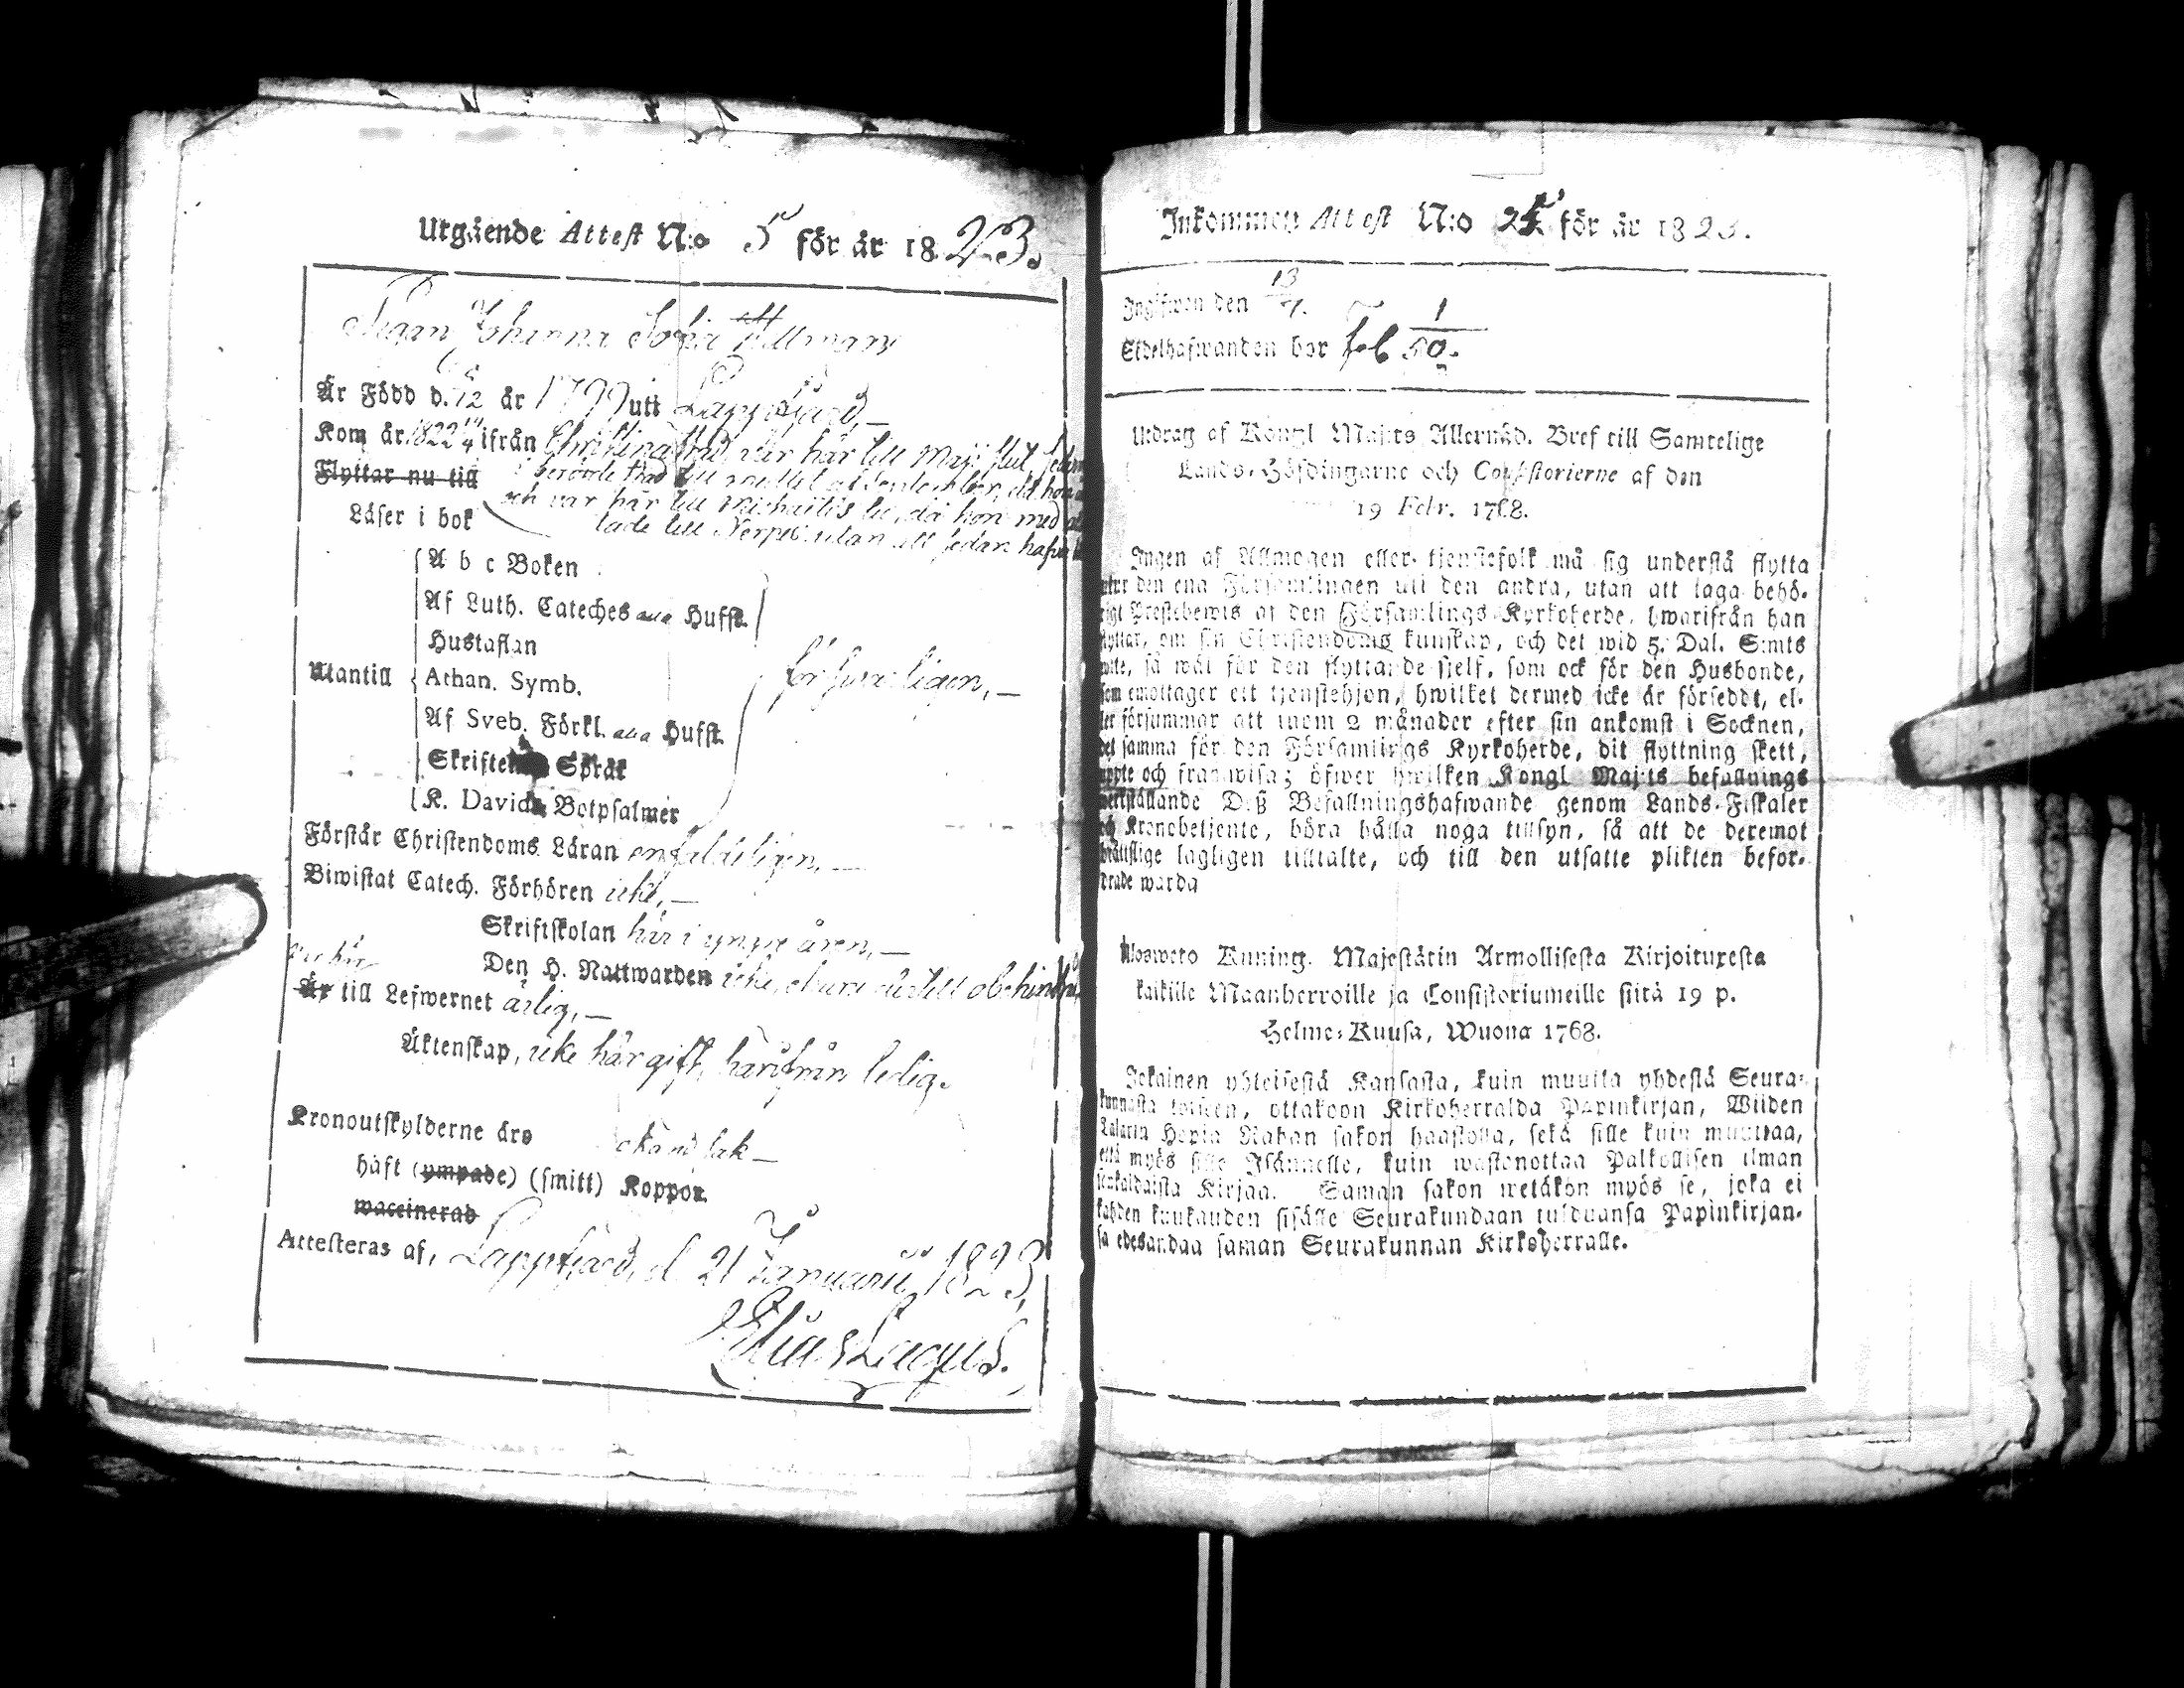 Utgående Attest N:o 5 för år 1823.
Pigan Johanna Sofia Hellman
Är Född d. 12 år 1799 uti Lappfjärd,
Kom år 1822 ifrån Christinæstad, var här till Maji slut, sedan
Flyttar nu till i berörde stad till medlet af September, då hon
Läser i bok och var här till Michaëlis tid, då hon med
lade till Nerpes utan att sedan hafva
A b c Boken
Af Luth. Cateches Hufst.
Hustaflan
Utantill Athan. Symb. försvarligen,
Af Sveb. Förkl. Hufst.
Skriftenes Språk
K. Davids Botpsalmer
Förstår Christendoms Läran enfaldeligen,
Biwistat Catech. Förhören icke,
Skriftskolan här i yngre åren,
Den H. Nattwarden icke, ehuru dertill obehindrad
Är till Lefwernet ärlig,
Äktenskap, icke här gift, härifrån ledig.
Kronoutskylderne äro
haft (ympade) (smitt) Koppor.
waccinerad
Attesteras af, Lappfjärd, d. 21 Januarii 1823,
Elias Lagus.
Inkommen Attest N:o för år 1823.
Ingifwen den 13
Eldelhafwanden bör
Utdrag af Kongl Maj:ts Allernåd. Bref till Samtelige
Lands-Höfdingarne och Consistorierne af den
19 Febr. 1768.
Ingen af Allmogen eller tjenstefolk må sig understå flytta
utur den ena Församlingen uti den andra, utan att taga behö-
rigt Prestebewis af den Församlings Kyrkoherde, hwarifrån han
flyttar, om sin Christendoms kunskap, och det wid 5. Dal. S:mts
wite, så wäl för den flyttande sjelf, som ock för den Husbonde,
som emottager ett tjenstehjon, hwilket dermed icke är försedt, el-
ler försummar att inom 2 månader efter sin ankomst i Socknen,
det samma för den Församlings Kyrkoherde, dit flyttning skett,
uppte och framwisa; öfwer hwilken Kongl Maj:ts befallnings
werkställande Deß Befallningshafwande genom Lands-Fiskaler
och Kronobetjente, böra hålla noga tillsyn, så att de deremot
brättslige lagligen tilltalte, och till den utsatte plikten befor-
drade warda
Uloswetö Kuning. Majestätin Armollisesta Kirjoituxesta
kaikille Maanherroille ja Consistoriumeille siitä 19 p.
Helme-Kuusa, Wuona 1768.
Jokainen yhteisestä Kansasta, kuin muutta yhdestä Seura-
kunnasta toiseen, ottakoon Kirkoherralda Papinkirjan, Wiiden
Talarin Hopia Rahan sakon haastolla, sekä sille kuin muuttaa,
että myös sille Isännelle, kuin wastanottaa Palkollisen ilman
senkaldaista Kirjaa. Saman sakon wetäkön myös se, joka ei
kahden kuukauden sisälle Seurakundaan tulduansa Papinkirjan-
sa edesandaa saman Seurakunnan Kirkoherralle.